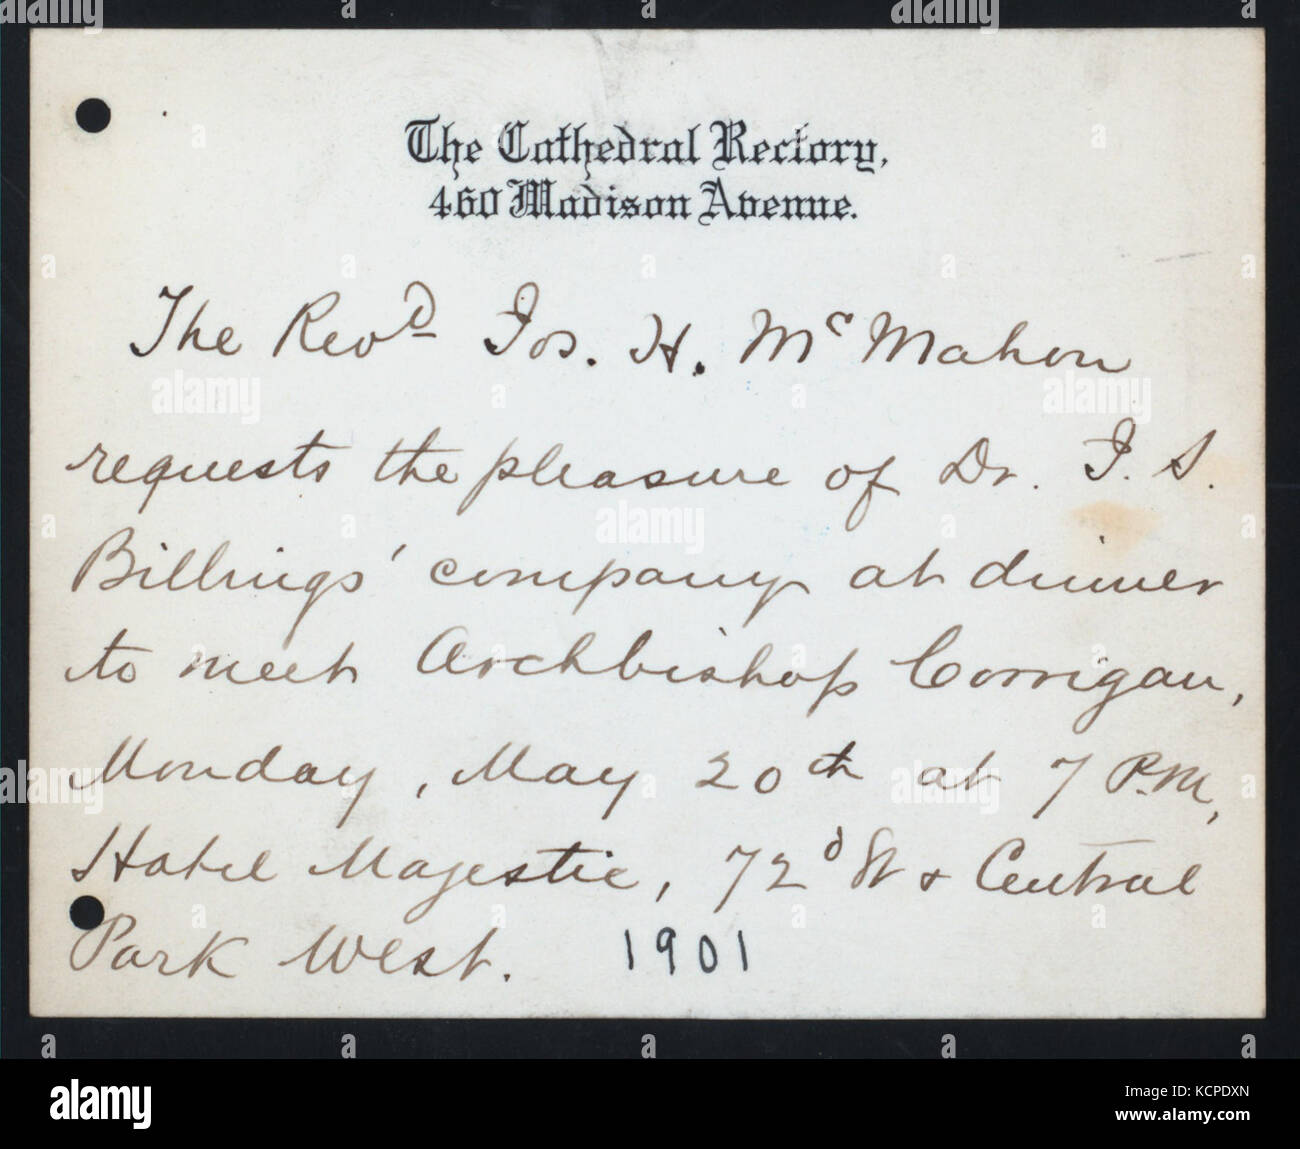 The Cathedral Rectory,
460 Madison Avenue.
The Revd Jos. H. McMahon
requests the pleasure of Dr. J. S.
Billings' company at dinner
to meet Archbishop Corrigan,
Monday, May 20th at 7 P.M,
Hotel Majestic, 72d St & Central
Park West. 1901
alamy
alamy
Image ID: KCPDXN
www.alamy.com